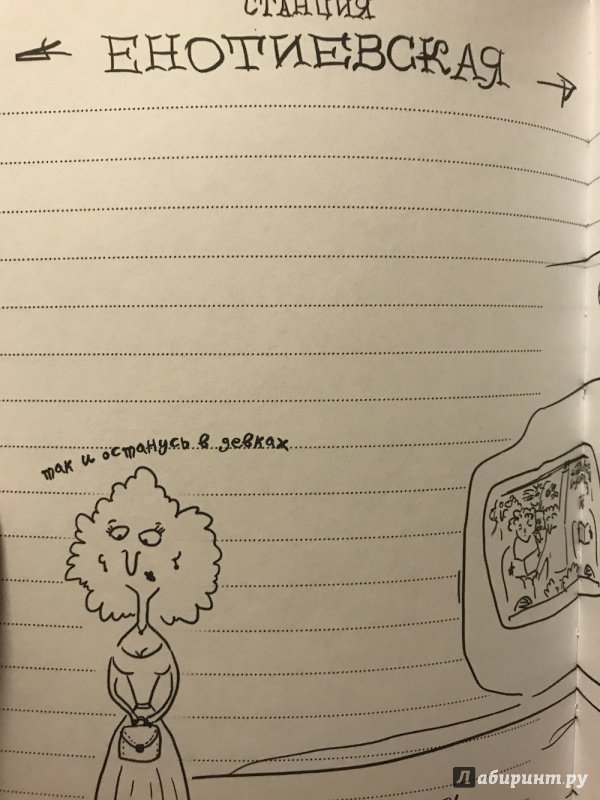 СТАНЦИЯ
ЕНОТИЕВСКАЯ
так и останусь в девках
Лабиринт.ру